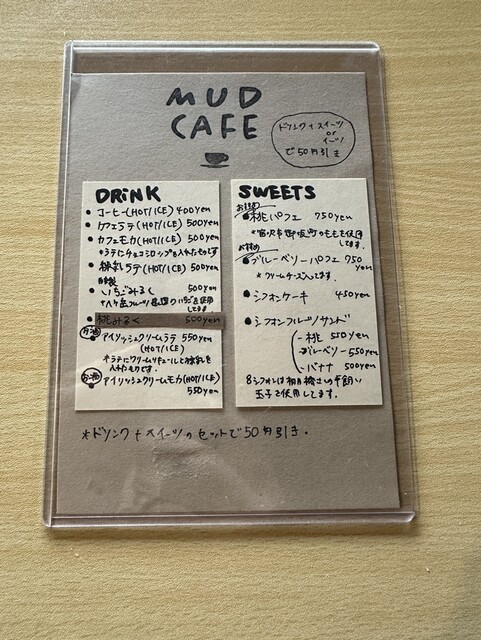 MUD
CAFE
ドリンク+スイーツ
で50円引き
DRiNK
コーヒー(HOT/ICE) 400yen
カフェラテ(HOT/ICE) 500yen
カフェモカ(HOT/ICE) 500yen
*ラテにチョコシロップを入れたものです
練乳ラテ(HOT/ICE) 500yen
自家製
いちごみるく 500yen
桃みるく 500yen
お酒 アイリッシュクリームラテ 550yen
(HOT/ICE)
*ラテにクリームリキュールと練乳を
入れたものです。
お酒 アイリッシュクリームモカ(HOT/ICE)
550yen
SWEETS
おすすめ
桃パフェ 750yen
おすすめ
ブルーベリーパフェ 750
yen
*クリームチーズ入ってます。
シフォンケーキ 450yen
シフォンフルーツサンド
- 桃 550yen
- ブルーベリー 550yen
- バナナ 500yen
玉子を使用してます。
*ドリンク+スイーツのセットで50円引き.